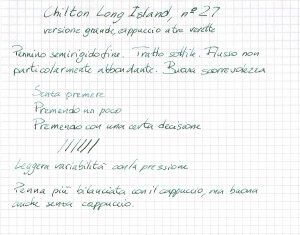 Chilton Long Island, n° 27
versione grande, cappuccio a tre verette
Pennino semirigido fine. Tratto sottile. Flusso non
particolarmente abbondante. Buona scorrevolezza
Senza premere
Premendo un poco
Premendo con una certa decisione
Leggera variabilità con la pressione
Penna più bilanciata con il cappuccio, ma buona
anche senza cappuccio.